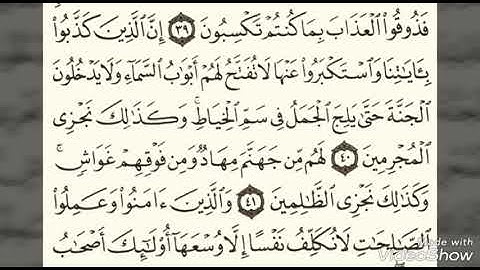 فَذُوقُوا۟ ٱلْعَذَابَ بِمَا كُنتُمْ تَكْسِبُونَ ٣٩ إِنَّ ٱلَّذِينَ كَذَّبُوا۟
بِـَٔايَـٰتِنَا وَٱسْتَكْبَرُوا۟ عَنْهَا لَا تُفَتَّحُ لَهُمْ أَبْوَٰبُ ٱلسَّمَآءِ وَلَا يَدْخُلُونَ
ٱلْجَنَّةَ حَتَّىٰ يَلِجَ ٱلْجَمَلُ فِى سَمِّ ٱلْخِيَاطِ ۚ وَكَذَٰلِكَ نَجْزِى
ٱلْمُجْرِمِينَ ٤٠ لَهُم مِّن جَهَنَّمَ مِهَادٌ وَمِن فَوْقِهِمْ غَوَاشٍ ۚ
وَكَذَٰلِكَ نَجْزِى ٱلظَّـٰلِمِينَ ٤١ وَٱلَّذِينَ ءَامَنُوا۟ وَعَمِلُوا۟
ٱلصَّـٰلِحَـٰتِ لَا نُكَلِّفُ نَفْسًا إِلَّا وُسْعَهَآ أُو۟لَـٰٓئِكَ أَصْحَـٰبُ
Made with
VideoShow